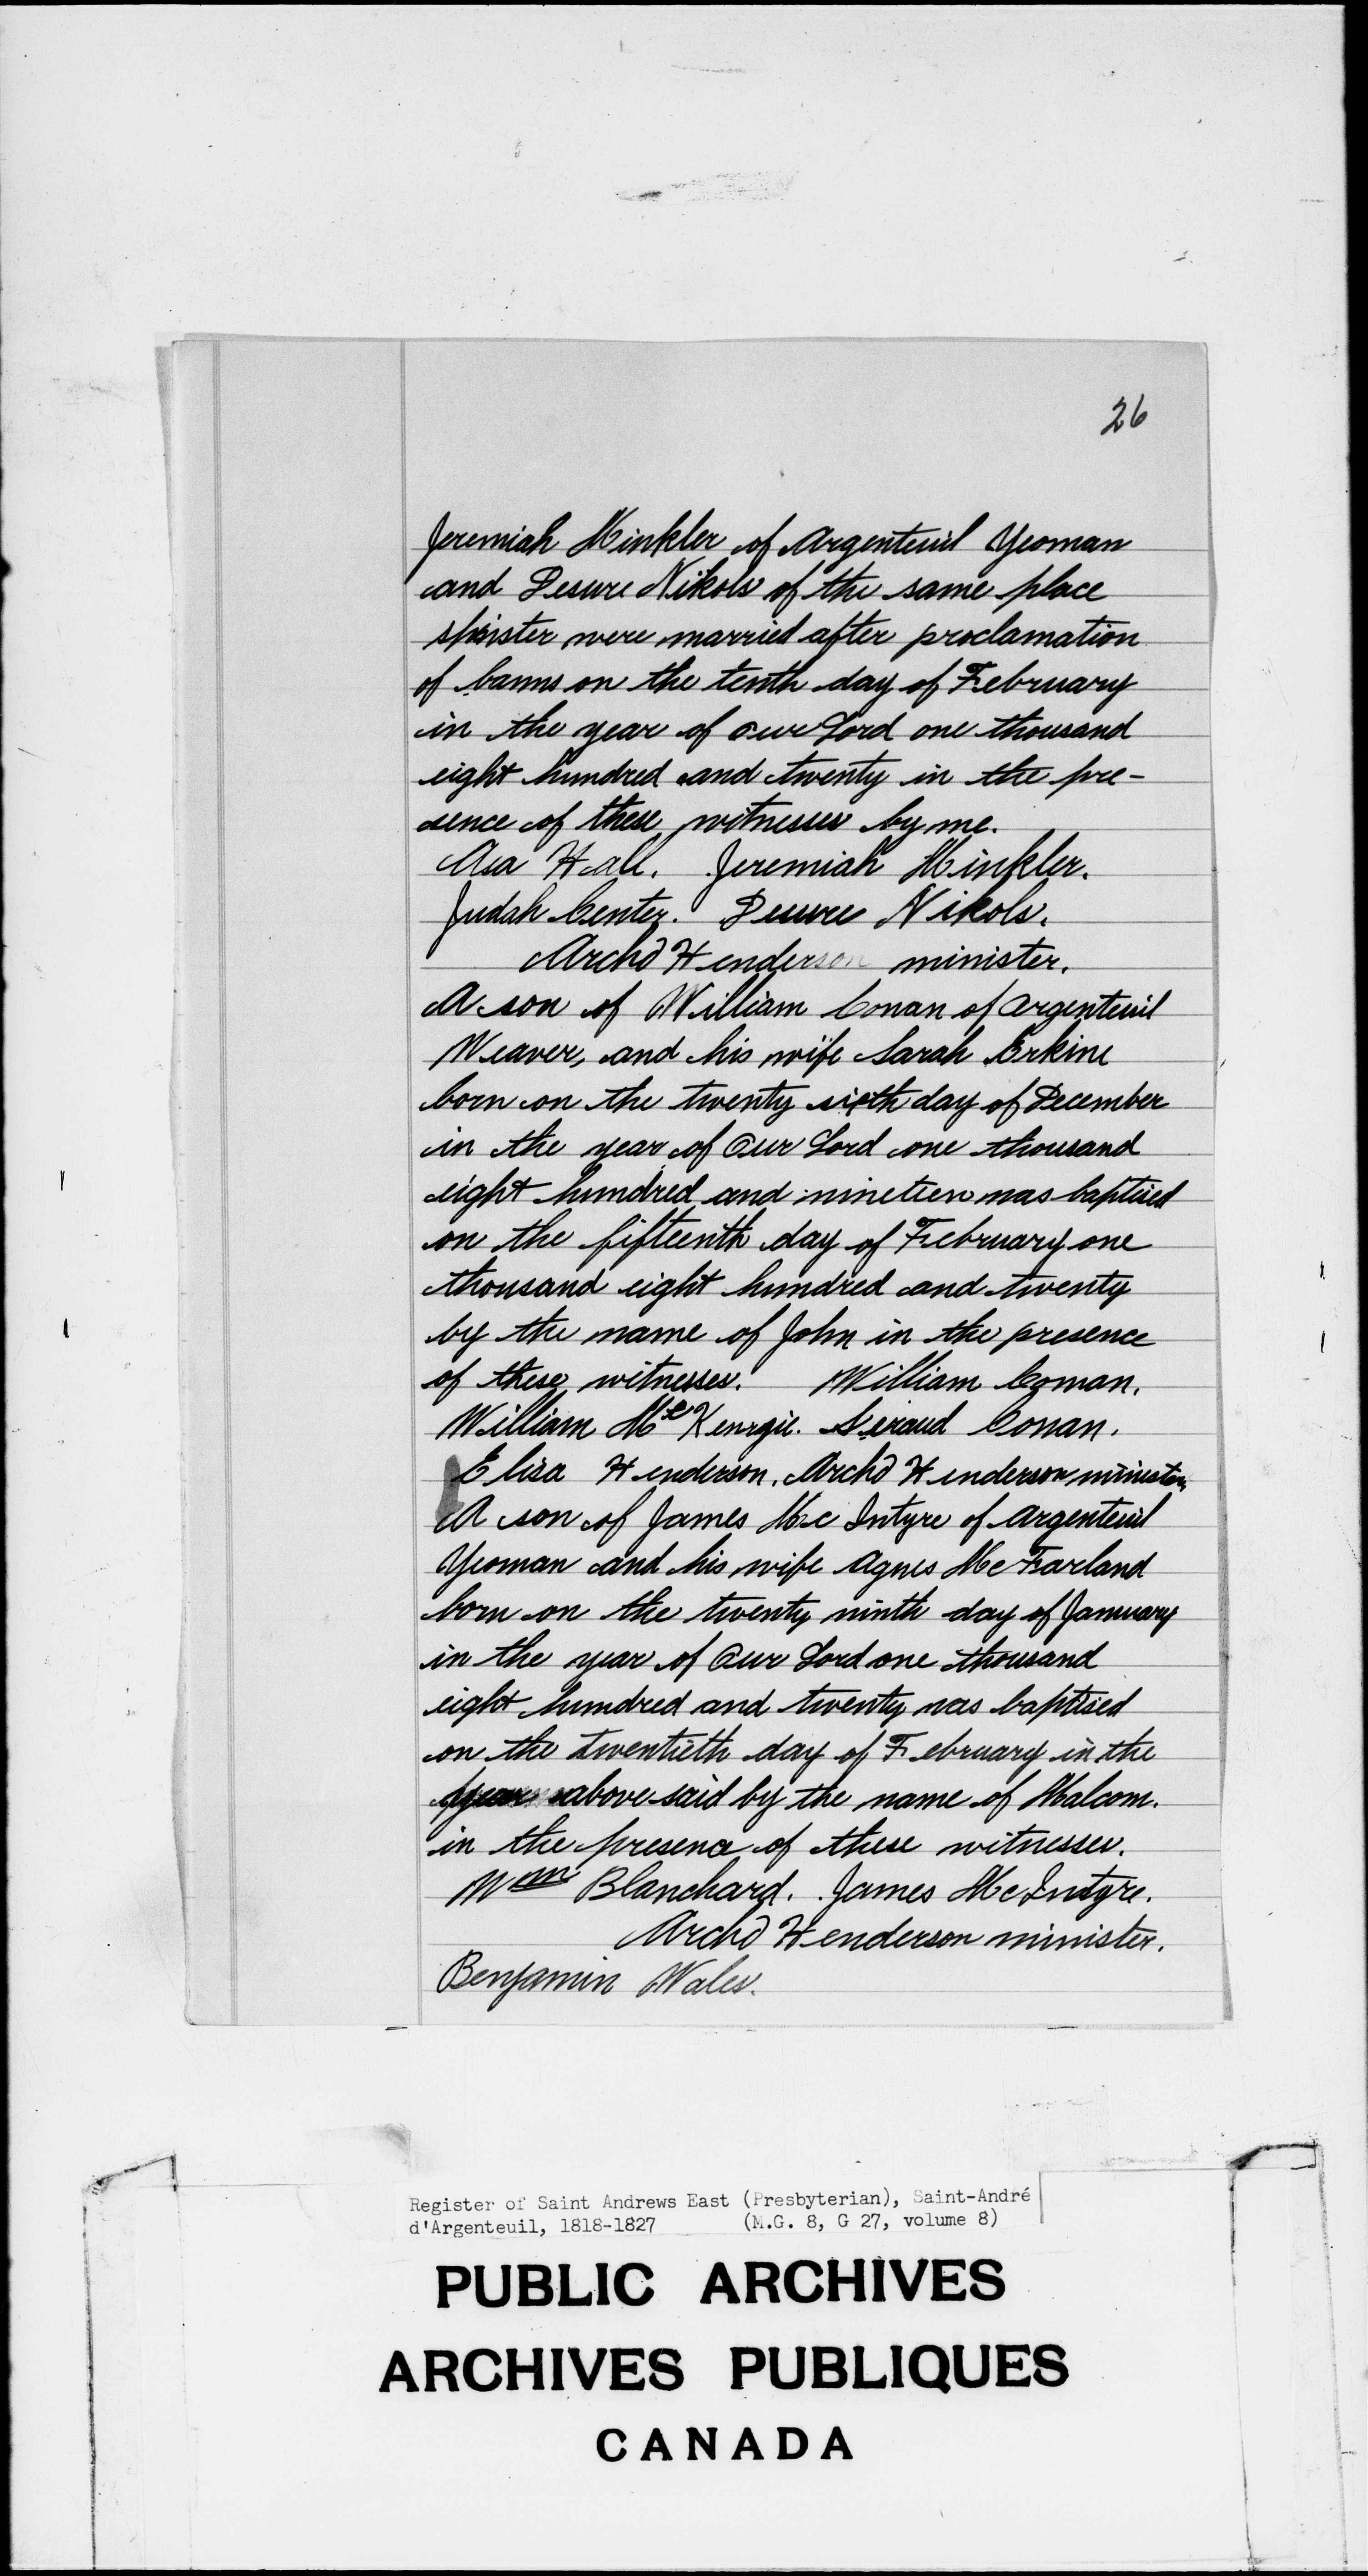 26
Jeremiah Hinkler of Argenteuil Yeoman
and Desire Nikols of the same place
spinster were married after proclamation
of banns on the tenth day of February
in the year of our Lord one thousand
eight hundred and twenty in the pre-
sence of these witnesses by me.
Asa Hall. Jeremiah Hinkler.
Judah Center. Desire Nikols.
Archd Henderson minister.
A son of William Conan of Argenteuil
Weaver, and his wife Sarah Erkine
born on the twenty sixth day of December
in the year of Our Lord one thousand
eight hundred and nineteen was baptised
on the fifteenth day of February one
thousand eight hundred and twenty
by the name of John in the presence
of these witnesses. William Coman.
William Mc Kenzie. Conan.
Elisa Henderson. Archd Henderson minister,
A son of James Mc Intyre of Argenteuil
Yeoman and his wife Agnes Mc Farland
born on the twenty ninth day of January
in the year of Our Lord one thousand
eight hundred and twenty was baptised
on the twentieth day of February in the
year above said by the name of Malcom.
in the presence of these witnesses.
Wam Blanchard. James Mc Intyre.
Archd Henderson minister.
Benjamin Wales.
Register of Saint Andrews East (Presbyterian), Saint-André
d'Argenteuil, 1818-1827 (M.G. 8, G 27, volume 8)
PUBLIC ARCHIVES
ARCHIVES PUBLIQUES
CANADA